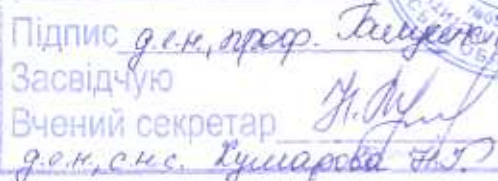 Підпис д.е.н, проф.
Засвідчую
Вчений секретар
д.е.н, с.н.с. Хумарова Н.І.